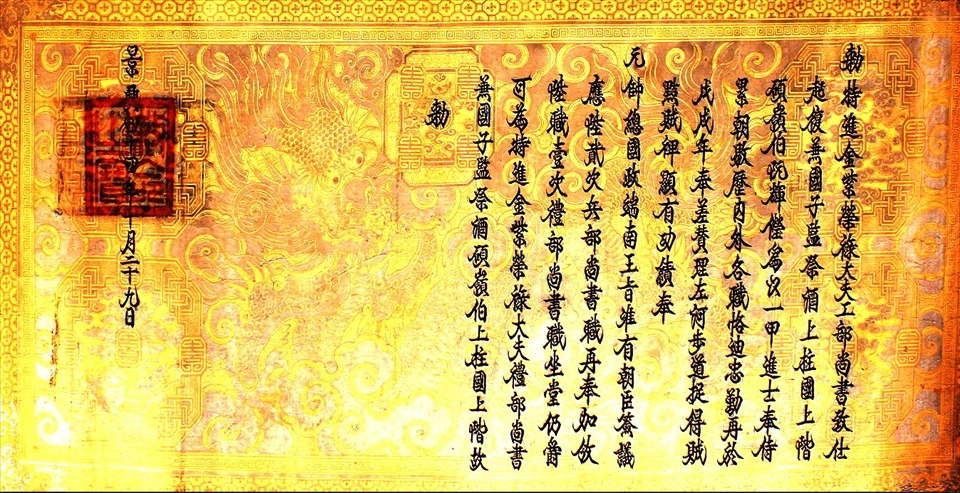 勅特進金紫榮祿大夫工部尚書致仕
起復兼國子監祭酒上柱國上階
碩嶺伯阮輝為以一甲進士奉侍
累朝敭歷內外各職恪迪忠勤再於
戊戌年奉差贊理左河步道捉得賊
賊碑顯有功績奉
元帥總國政端南王旨准有朝臣僉議
應陞貳次兵部尚書職再奉加
陞職壹次禮部尚書職坐堂仍爵
可為特進金紫榮祿大夫禮部尚書
兼國子監祭酒碩嶺伯上柱國上階故
勅
景興年月二十九日